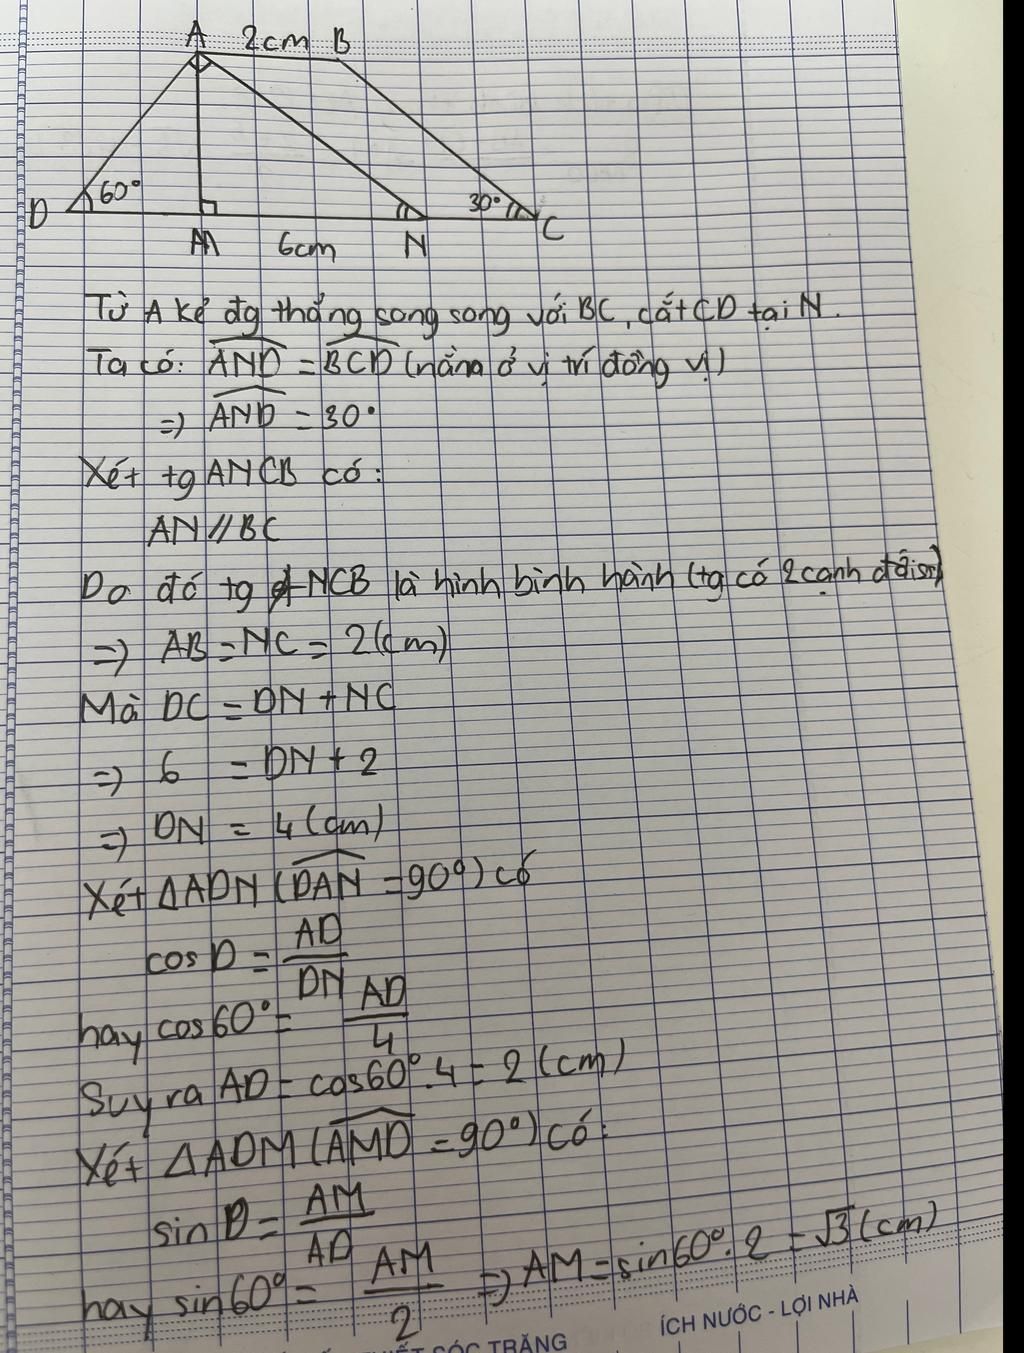 A 2cm B
60°
30°
D
M 6cm N C
Từ A kẻ đg thẳng song song với BC, cắt CD tại N.
Ta có: AND = BCD (nằm ở vị trí đồng vị)
=) AND = 30°
Xét tg ANCB có:
AN // BC
Do đó tg ANCB là hình bình hành (tg có 2 cạnh đối ss)
=) AB = NC = 2(cm)
Mà DC = DN + NC
=) 6 = DN + 2
=) DN = 4 (cm)
Xét ΔADN (DAN = 90°) có
cos D = AD/DN
hay cos60° = AD/4
Suy ra AD = cos60°.4 = 2 (cm)
Xét ΔADM (AMD = 90°) có:
sin D = AM/AD
hay sin60° = AM/2 =) AM = sin60°.2 = √3 (cm)
ÍCH NƯỚC - LỢI NHÀ
SÓC TRĂNG